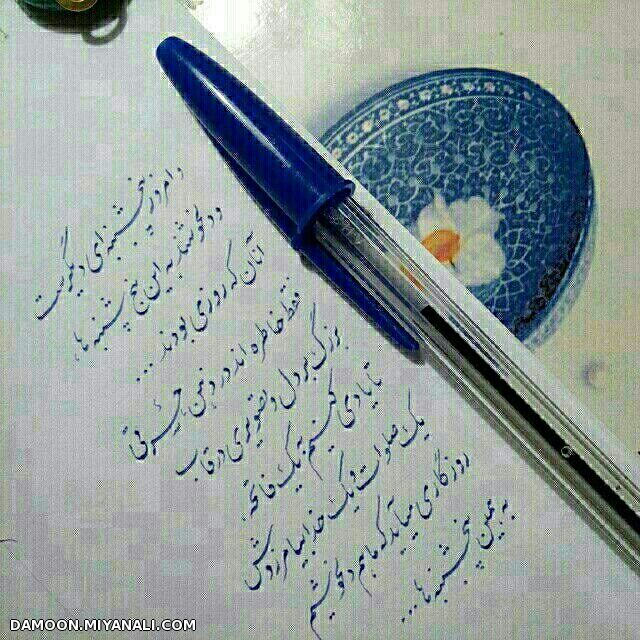 و امروز پنجشنبه‌ای دیگرست
و دلخوشند به این پنج شنبه ها،
آنان که روزی بودند ...
فقط خاطره اند در ذهن،
بزرگ بر دل و تصویری در قاب
تا یادی کنیم به یک فاتحه،
یک صلوات و یک خدا بیامرزدش
روزگاری میآید که ما هم دلخوشیم
به همین پنجشنبه ها ...
DAMOON.MIYANALI.COM